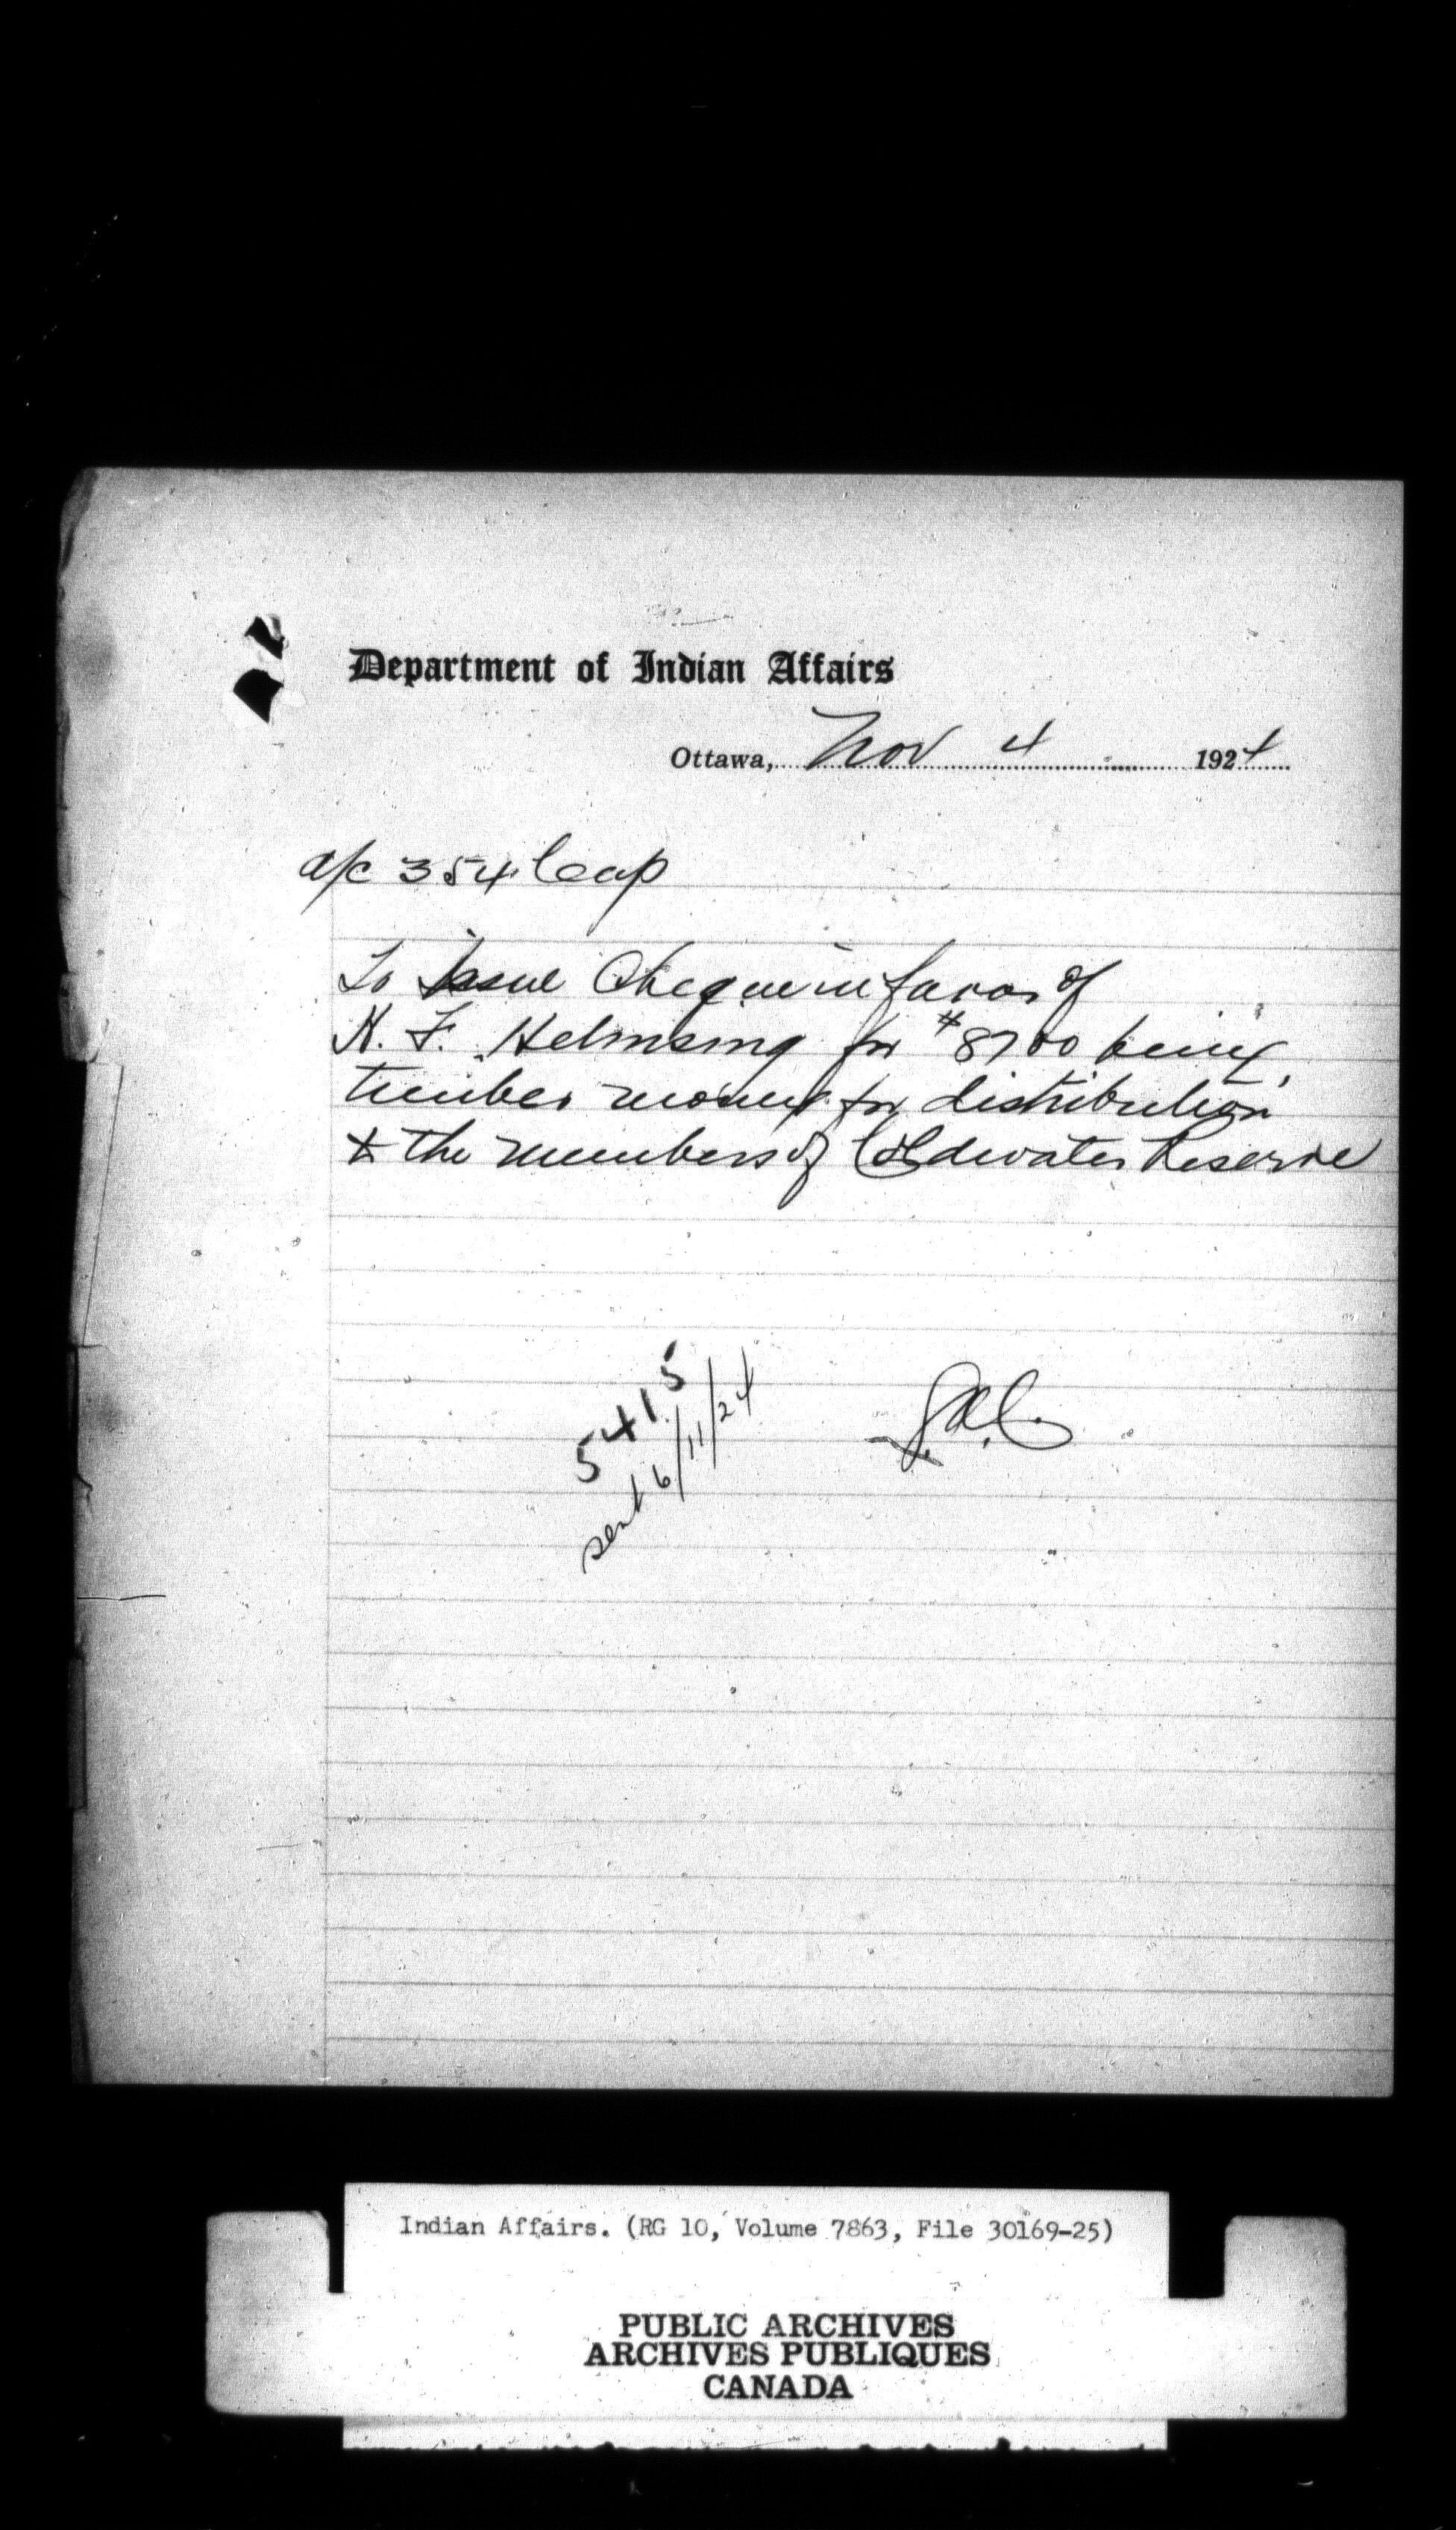 Department of Indian Affairs
Ottawa, Nov 4 1924
a/c 354 Cap
To Issue Cheque in favor of
H. F. Helmsing for $8700 being
timber money for distribution
to the members of Coldwater Reserve
5415
sent 6/11/24
Indian Affairs. (RG 10, Volume 7863, File 30169-25)
PUBLIC ARCHIVES
ARCHIVES PUBLIQUES
CANADA